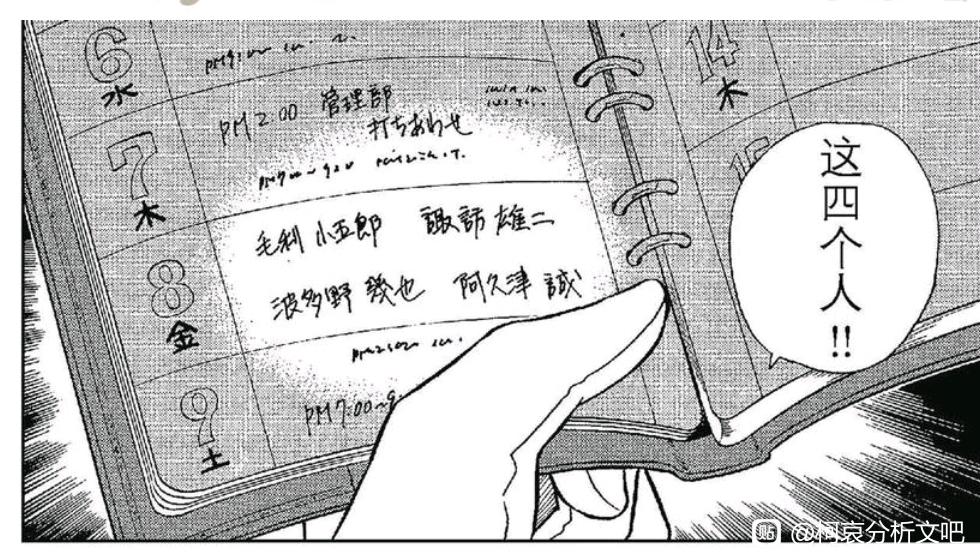 6
水
7
木
PM2:00 管理部
打ちあわせ
8
金
毛利 小五郎 諏訪 雄二
波多野 幾也 阿久津 誠
9
土
PM7:00~9
14
木
15
这
四
个
人
!!
貼 @柯哀分析文吧